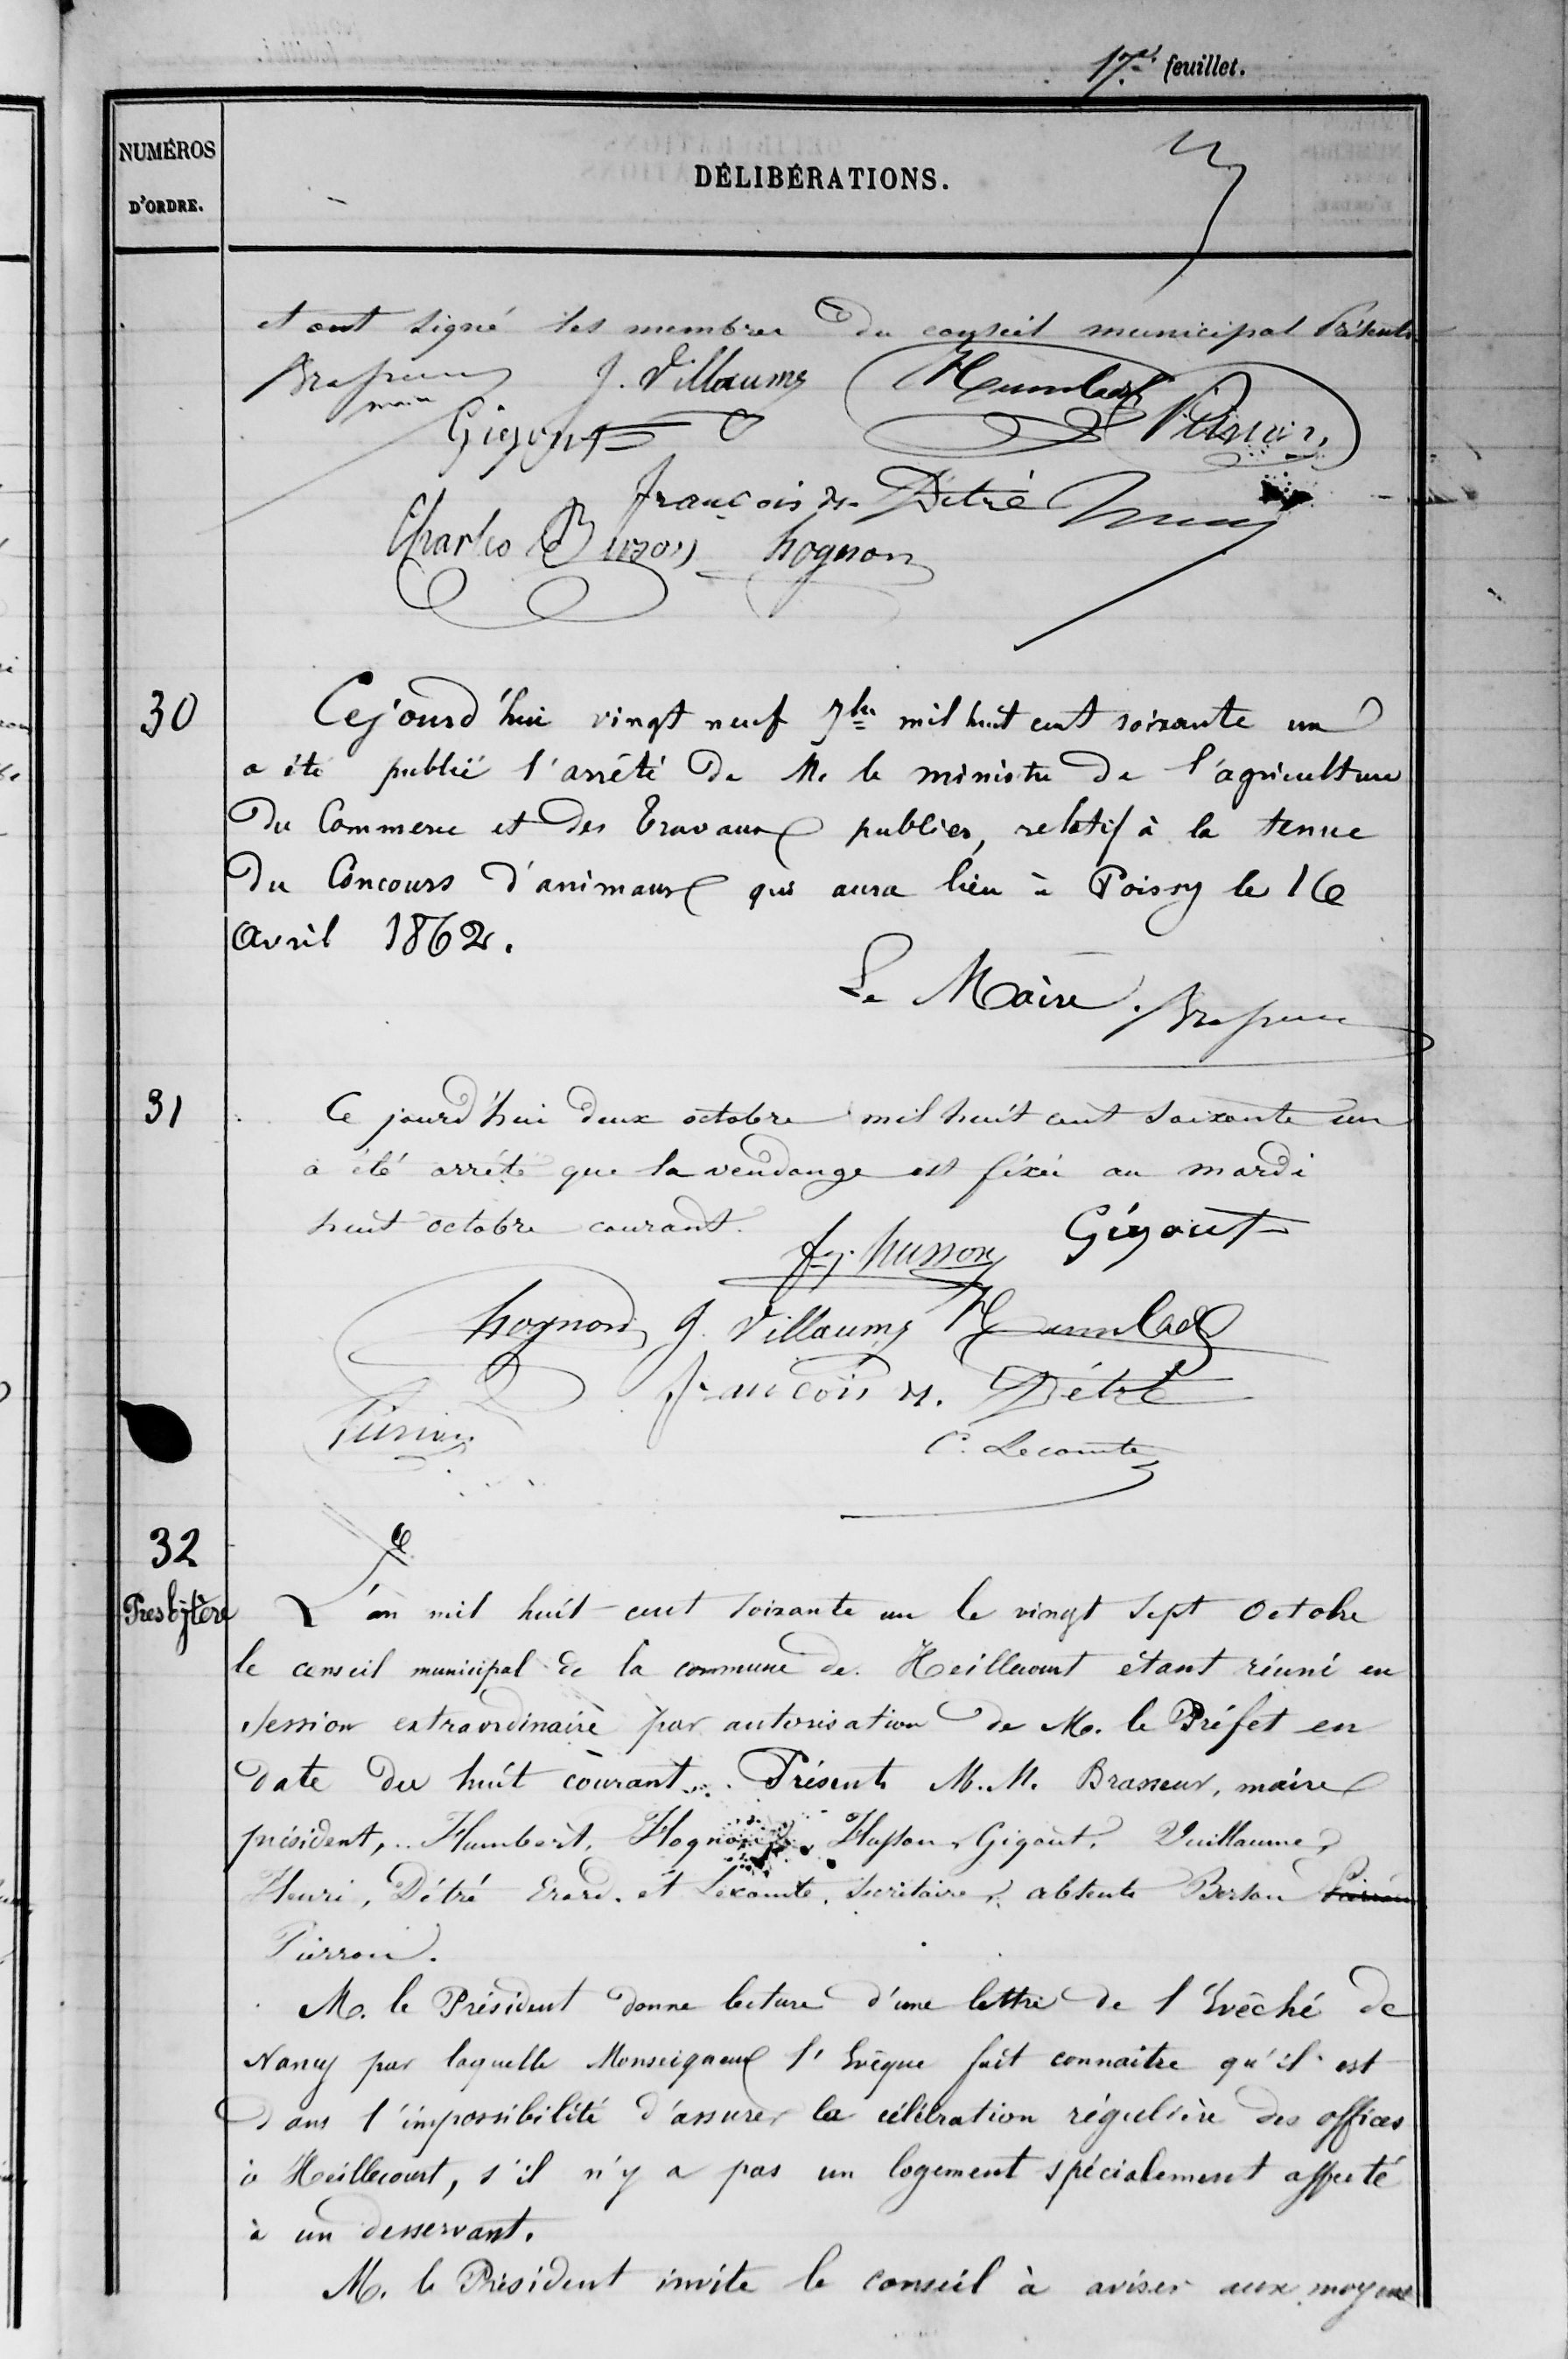 17e feuillet.
NUMÉROS
D'ORDRE.
DÉLIBÉRATIONS.
et ont signé les membres du conseil municipal Présents
Brasseur J. Villaume Humbert
maire
Gigout Pierron
François H. Détré
Charles Buzon hognon
30
Cejourd'hui vingt neuf 7bre mil huit cent soixante un
a été publié l'arrêté de M. le ministre de l'agriculture
du Commerce et des Travaux publics, relatif à la tenue
du Concours d'animaux qui aura lieu à Poissy le 16
avril 1862.
Le Maire. Brasseur
31
Ce jourd'hui deux octobre mil huit cent soixante un
a été arrêté que la vendange est fixée au mardi
huit octobre courant.
fs. husson Gigout
hognon J. Villaume Humbert
François H. Détré
Pierron
C. Lecomte
32
Presbytère
L'an mil huit cent soixante un le vingt sept Octobre
le conseil municipal de la commune de Heillecourt étant réuni en
session extraordinaire par autorisation de M. le Préfet en
date du huit courant. Présents M.M. Brasseur, maire
président, Humbert, Hognon, Husson, Gigout, Vuillaume,
Henri, Détré Erard, et Lecomte, secrétaire, absents Berson Pierron
Pierron.
M. le Président donne lecture d'une lettre de l'Evêché de
Nancy par laquelle Monseigneur l'Evêque fait connaitre qu'il est
dans l'impossibilité d'assurer la célébration régulière des offices
à Heillecourt, s'il n'y a pas un logement spécialement affecté
à un desservant.
M. le Président invite le conseil à aviser aux moyens